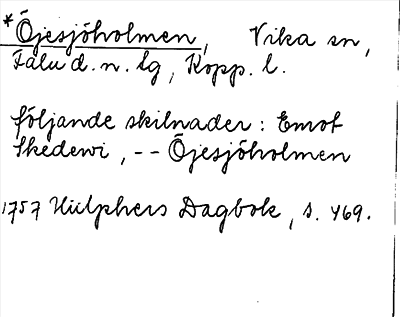 *Öjesjöholmen, Vika sn,
Falu d. n. tg, Kopp. l.
följande skilnader: Emot
Skedewi, -- Öjesjöholmen
1757 Hülphers Dagbok, s. 469.